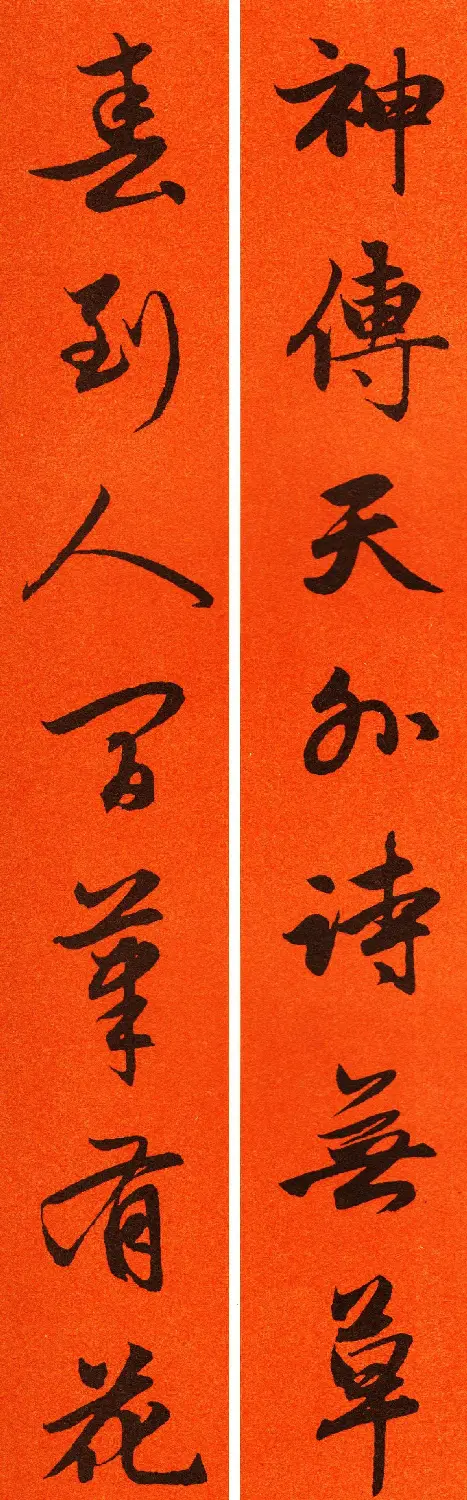 神傳天外詩無草
春到人間筆有花